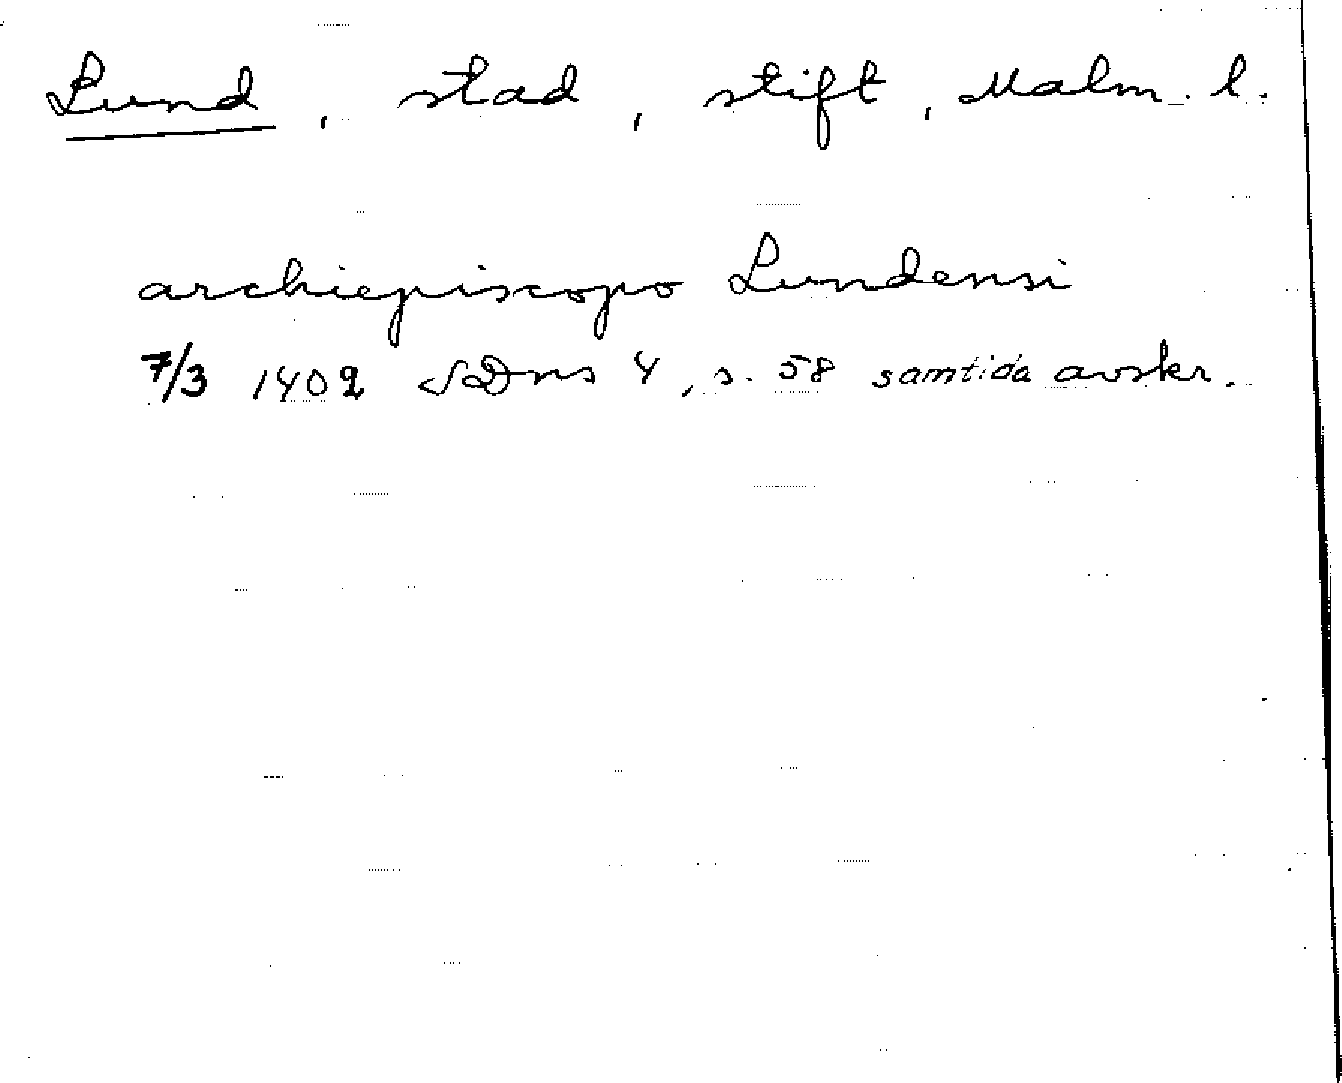 Lund, stad, stift, Malm. l.
archiepiscopo Lundensi
7/3 1402 SDns 4, s. 58 samtida avskr.